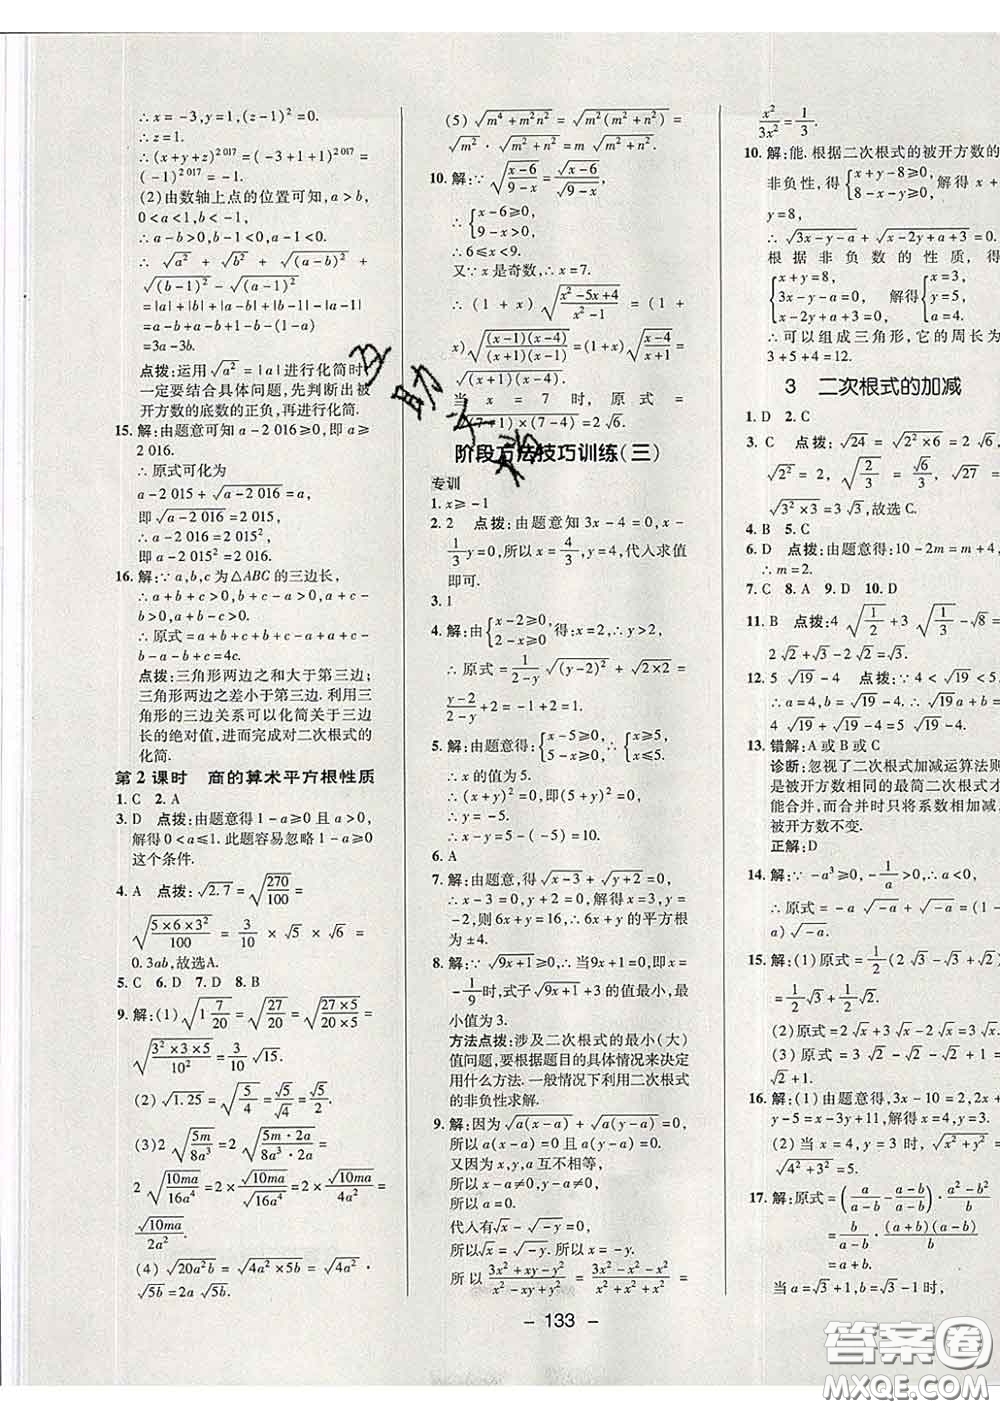 ∴x=-3,y=1,(z-1)²=0.
∴z=1.
∴(x+y+z)²⁰¹⁷=(-3+1+1)²⁰¹⁷=
(-1)²⁰¹⁷=-1.
(2)由数轴上点的位置可知,a>b,
0<a<1,b<-1.
∴a-b>0,b-1<0,a-1<0.
∴√a²+√b²+√(a-b)²-
√(b-1)²-√(a-1)²
=|a|+|b|+|a-b|-|b-1|-|a-1|
=a-b+(a-b)+(b-1)+(a-1)
=3a-3b.
点拨:运用√a²=|a|进行化简时,
一定要结合具体问题,先判断出被
开方数的底数的正负,再进行化简.
15.解:由题意可知a-2016≥0,即a≥
2016.
∴原式可化为
a-2015+√(a-2016)=a,
即√(a-2016)=2015,
∴a-2016=2015²,
即a-2015²=2016.
16.解:∵a,b,c为△ABC的三边长,
∴a+b+c>0,b+c-a>0,
c+a-b>0.
∴原式=a+b+c+b+c-a+c-a+
b+a-b+c=4c.
点拨:三角形两边之和大于第三边;
三角形两边之差小于第三边.利用三
角形的三边关系可以化简关于三边长
的绝对值,进而完成对二次根式的
化简.
第2课时 商的算术平方根性质
1.C 2.A
3.D 点拨:由题意得1-a≥0且a>0,
解得0<a≤1.此题容易忽略1-a≥0
这个条件.
4.A 点拨:√2.7=√(270/100)=
√(5×6×3²/100)=3/10×√5×√6=
0.3ab,故选A.
5.C 6.D 7.D 8.B
9.解:(1)√(1 7/20)=√(27/20)=√(27×5/(20×5))=
√(3²×3×5/10²)=3/10√15.
(2)√1.25=√(5/4)=√5/√4=√5/2.
(3)2√(5m/8a³)=2√(5m·2a/(8a³·2a))=
2√(10ma/16a⁴)=2×√(10ma)/√(16a⁴)=2×√(10ma)/4a²=
√(10ma)/2a².
(4)√(20a²b)=√(4a²×5b)=√4a²·
√5b=2a√5b.
(5)√(m⁴+m²n²)=√(m²(m²+n²))=
√m²·√(m²+n²)=m√(m²+n²).
10.解:∵√((x-6)/(9-x))=√(x-6)/√(9-x),
∴{x-6≥0, 9-x>0,
∴6≤x<9.
又∵x是奇数,∴x=7.
∴(1+x)√((x²-5x+4)/(x²-1))=(1+
x)√((x-1)(x-4)/((x+1)(x-1)))=(1+x)√((x-4)/(x+1))
=√((x+1)(x-4)).
当x=7时,原式=
√((7+1)×(7-4))=2√6.
阶段方法技巧训练(三)
专训
1.x≥-1
2.2 点拨:由题意知3x-4=0,x-
1/3y=0,所以x=4/3,y=4,代入求值
即可.
3.1
4.解:由{x-2≥0, 2-x≥0得:x=2,∴y>2,
∴原式=1/(2-y)√((y-2)²)+√(2×2)=
(y-2)/(2-y)+2=-1+2=1.
5.解:由题意得:{x-5≥0, 5-x≥0,∴{x≥5, x≤5,
∴x=5.
∴y=-5.
∴x-y=5-(-5)=10.
6.A
7.解:由题意,得√(x-3)+√(y+2)=0,
∴x-3=0,y+2=0,解得x=3,y=
-2,则6x+y=16,∴6x+y的平方根
为±4.
8.解:∵√(9x+1)≥0,∴当9x+1=0,即x=
-1/9时,式子√(9x+1)+3的值最小,最
小值为3.
方法点拨:涉及二次根式的最小(大)
值问题,要根据题目的具体情况来决定
用什么方法.一般情况下利用二次根式
的非负性求解.
9.解:因为√(a(x-a))+√(a(y-a))=0,
所以a(x-a)=0且a(y-a)=0.
又因为x,y,a互不相等,
所以x-a≠0,y-a≠0,
所以a=0.
代入有√x-√-y=0,
所以√x=√-y,所以x=-y.
所以(3x²+xy-y²)/(x²-xy+y²)=(3x²-x²-x²)/(x²+x²+x²)=
x²/3x²=1/3.
10.解:能.根据二次根式的被开方数的
非负性,得{x+y-8≥0, 8-x-y≥0,解得x+
y=8,
∴√(3x-y-a)+√(x-2y+a+3)=0.
根据非负数的性质,得
{x+y=8, 3x-y-a=0, x-2y+a+3=0,解得{x=3, y=5, a=4.
∴可以组成三角形,它的周长为
3+5+4=12.
3 二次根式的加减
1.D 2.C
3.C 点拨:√24=√(2²×6)=
2√6,√(2/3)=√6/3,
√(3²×3)=3√3,故选C.
4.B 5.C
6.D 点拨:由题意得:10-2m=m+4,
∴m=2.
7.C 8.A 9.D 10.D
11.B 点拨:4√(1/2)+3√(1/3)-√8=
2√2+√3-2√2=√3.
12.5√19-4 点拨:∵4<√19<5,
∴a=4,b=√19-4,
4√19+√19-4=5√19-4.
13.错解:A或B或C
诊断:忽视了二次根式加减运算法则
是被开方数相同的最简二次根式才
能合并,而合并时只将系数相加减,
被开方数不变.
正解:D
14.解:∵-a³≥0,-1/a>0,
∴a<0,
∴原式=-a√-a+√-a=(1-
a)√-a.
15.解:(1)原式=1/2(2√3-√3+√2)
=1/2√3+1/2√2.
(2)原式=2√x+3√x-2√x=3√x.
(3)原式=3√2-√2-√2+1=
√2+1.
16.解:(1)由题意得,3x-10=2,2x+
y-5=x-3y+11,解得x=4,y=3.
(2)当x=4,y=3时,√(x²+y²)=
√(4²+3²)=5.
17.解:原式=(a/(a-b)-(a-b)/(a-b))·(a²-b²)/b
=b/(a-b)·(a+b)(a-b)/b
=a+b.
当a=√3+1,b=√3-1时,
- 133 -
答案圈
MXQE.COM